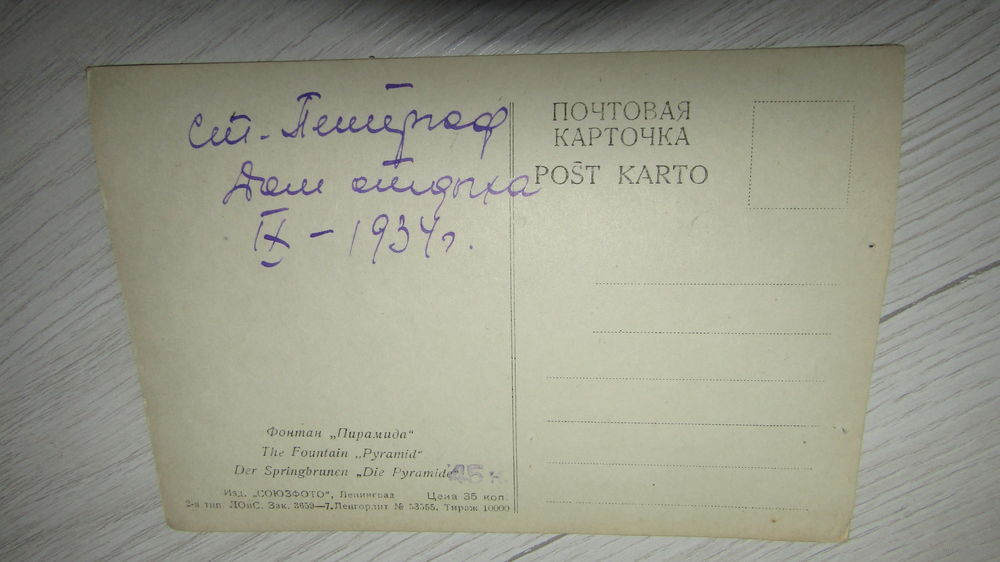 ст. Петергоф
Дом отдыха
IX – 1934 г.
ПОЧТОВАЯ
КАРТОЧКА
POŜT KARTO
Фонтан „Пирамида“
The Fountain „Pyramid“
Der Springbrunen „Die Pyramide“
45 к
Изд. „СОЮЗФОТО“, Ленинград Цена 35 коп.
2-я тип. ЛОиС. Зак. 3659—7. Ленгорлит № 53555. Тираж 10000